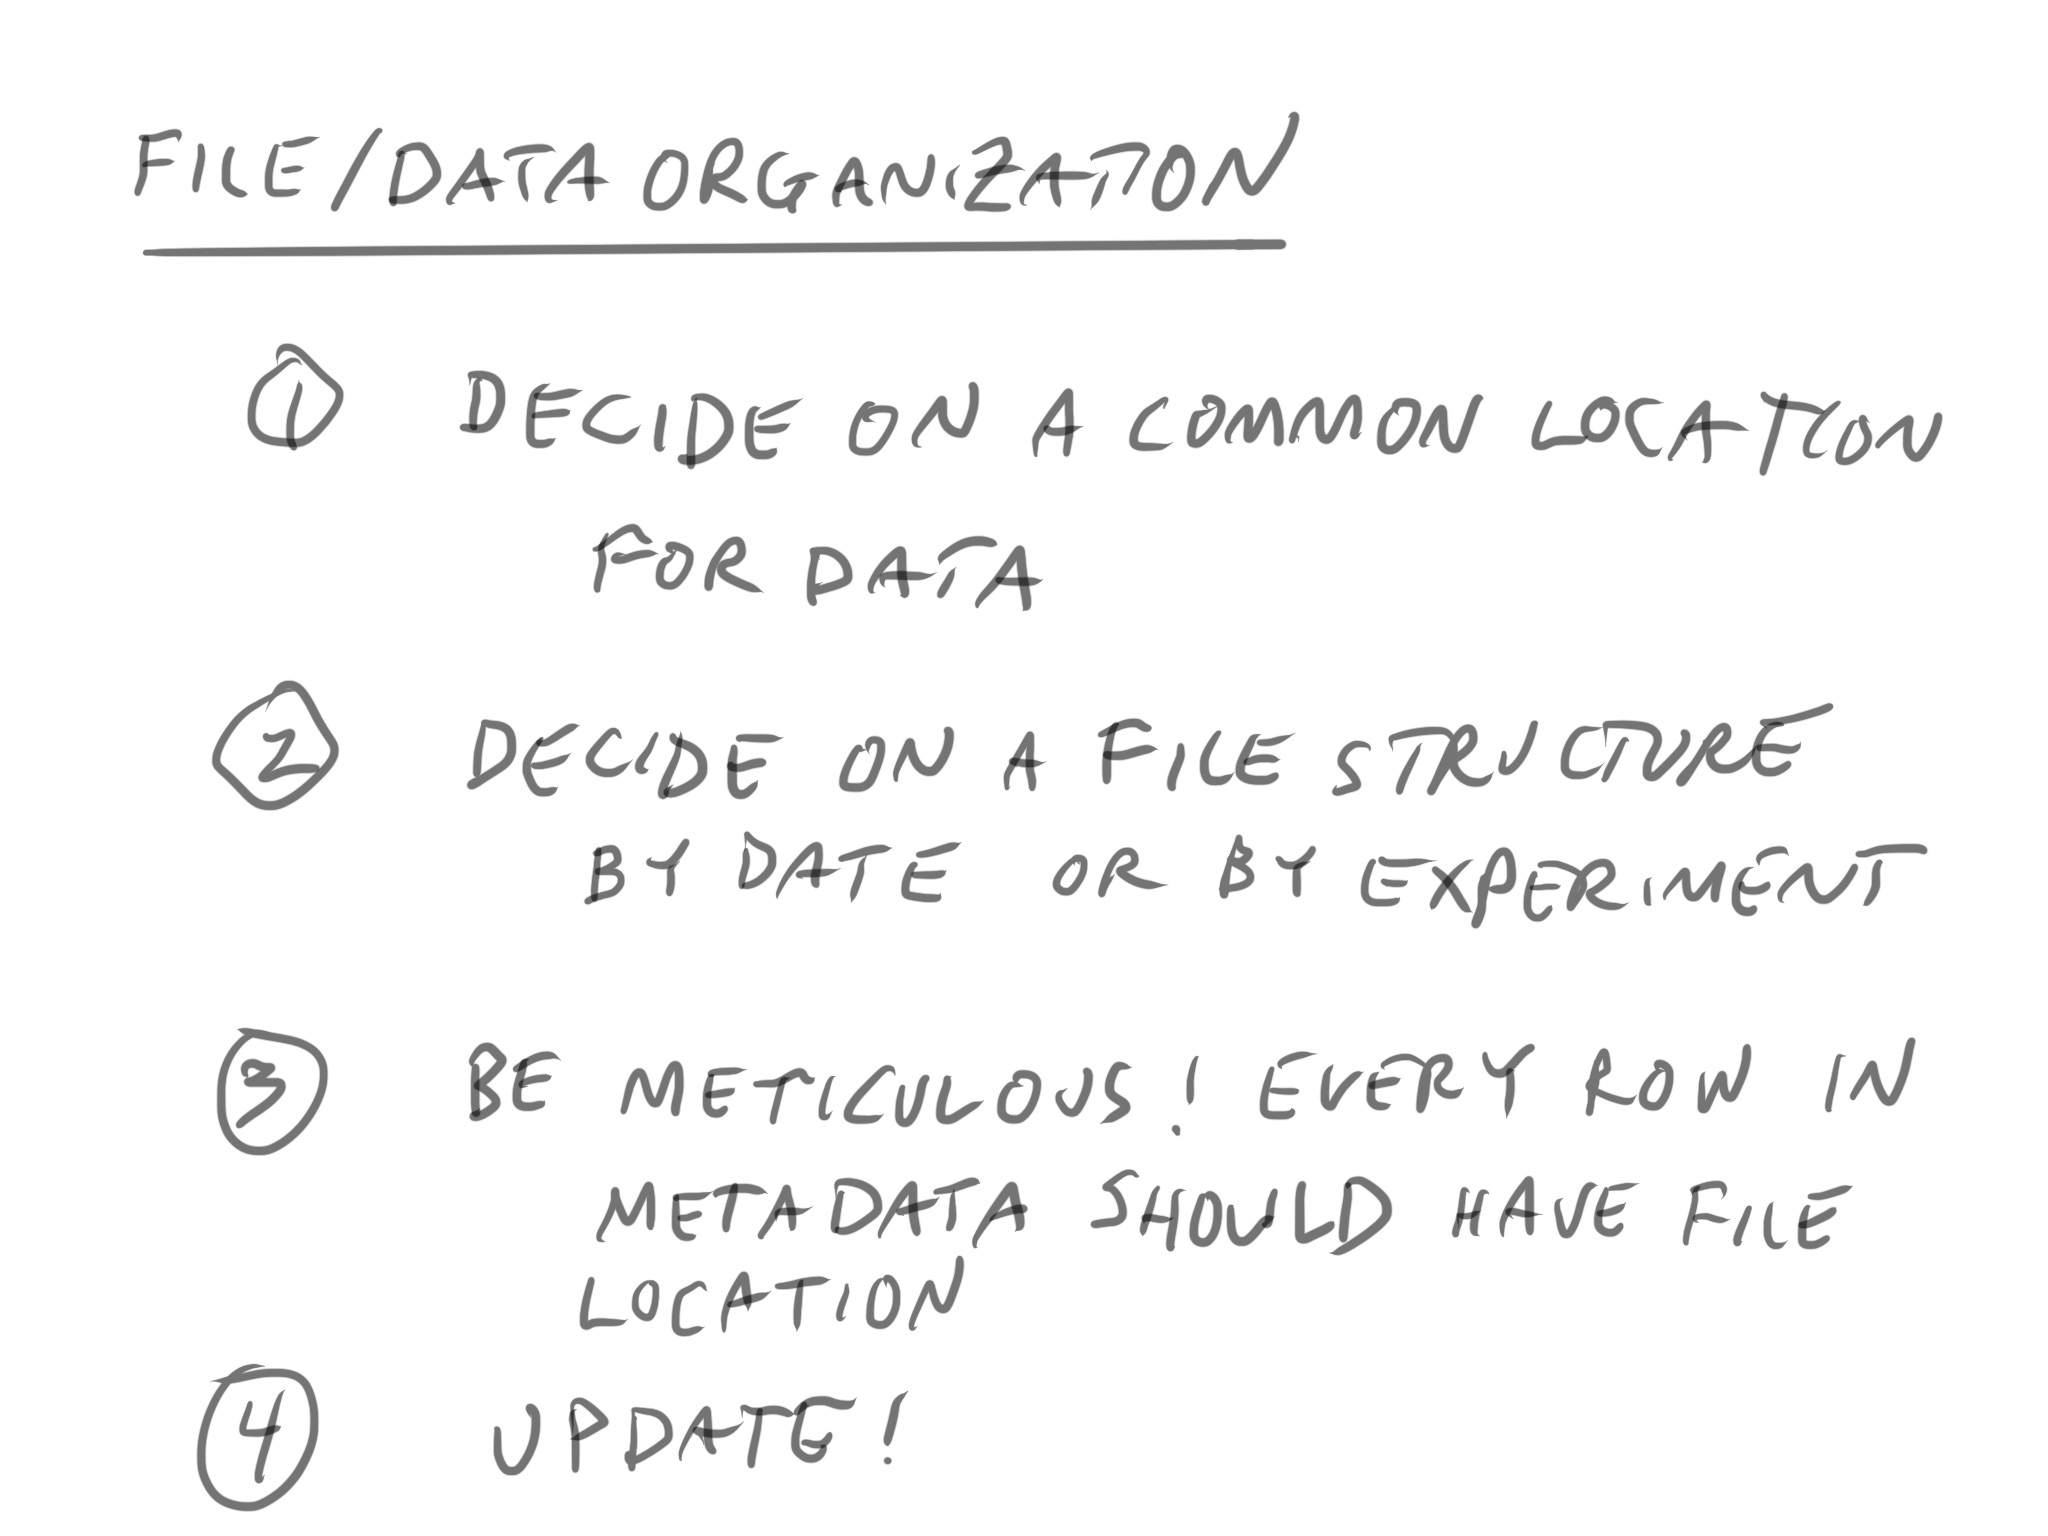 FILE/DATA ORGANIZATION
1 DECIDE ON A COMMON LOCATION
FOR DATA
2 DECIDE ON A FILE STRUCTURE
BY DATE OR BY EXPERIMENT
3 BE METICULOUS! EVERY ROW IN
METADATA SHOULD HAVE FILE
LOCATION
4 UPDATE!